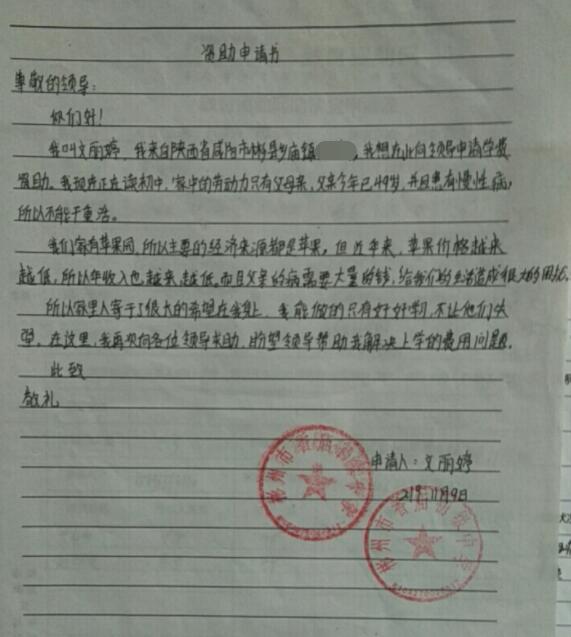 资助申请书
尊敬的领导:
你们好!
我叫文丽婷,我来自陕西省咸阳市彬县 镇 ,我想在此向领导申请学费
资助。我现在正在读初中,家中的劳动力只有父母亲,父亲今年已49岁,并且患有慢性病,
所以不能干重活。
我们家有苹果园,所以主要的经济来源都是苹果,但近年来,苹果价格越来
越低,所以年收入也越来越低,而且父亲的病需要大量的钱,给我们的生活造成很大的困扰。
所以家里人寄于了很大的希望在我身上,我能做的只有好好学习,不让他们失
望。在这里,我再次向各位领导求助,盼望领导帮助我解决上学的费用问题。
此致
敬礼
申请人:文丽婷
11月9日
彬州市
彬州市